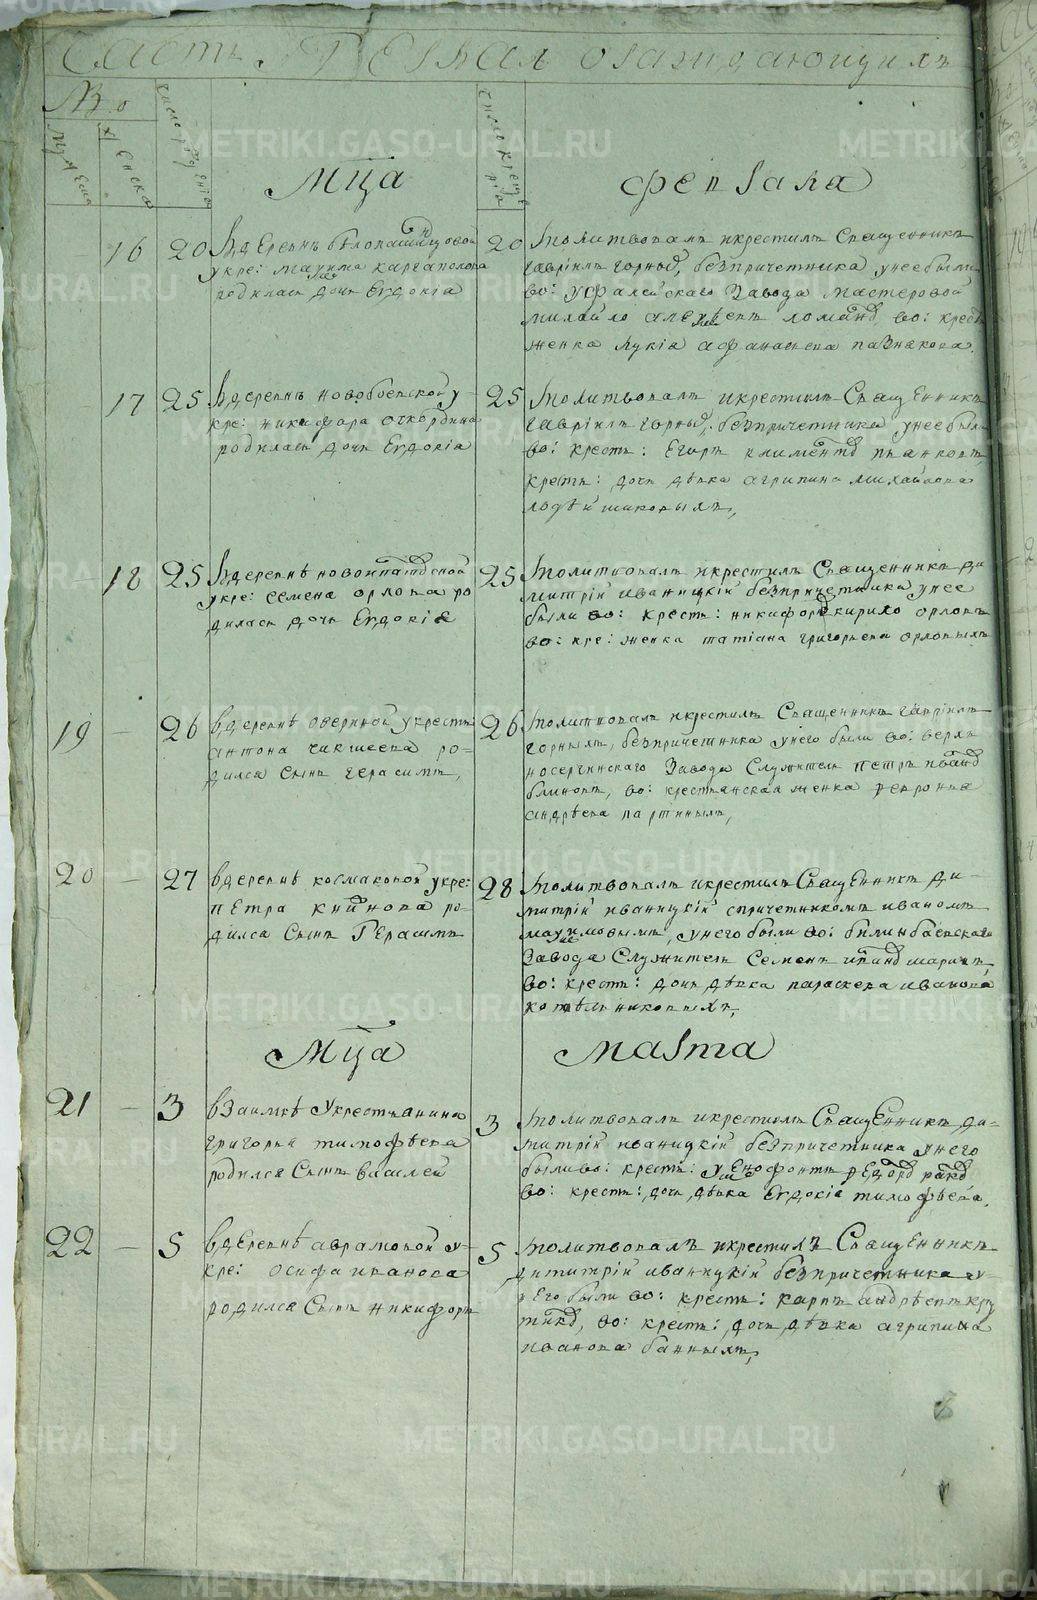 Часть Первая о раждающихъ
№ о
Мужеска
Женска
число рождения
число крещения
Мца февраля
16 20 Вдеревнѣ белопашенцовой
укре: маѯима каргаполова
родилась дочь Евдокіа
20 молитвовалъ икрестилъ Священникъ
гаврiилъ горныхъ, безпричетника унее были
во: уфалейскаго Завода мастеровой
михайло алеѯеевъ
женка лукіа афанасьева
17 25 Вдеревнѣ новобоевской у
кре: никифора
родилась дочь Евдокіа
25 молитвовалъ икрестилъ Священникъ
гаврiилъ горныхъ, безпричетника унее были
во: кресть: Егоръ климентов пьянковъ
кресть: дочь дѣвка агрипина михайлова
18 25 Вдеревнѣ новоипатовской
укре: семена орлова ро
дилась дочь Евдокіа
25 молитвовалъ икрестилъ Священникъ ди
митрій иваницкій безпричетника унее
были во: кресть: никифоръ кирило орловъ
во: кре: женка татіана григорьева орловыхъ
19 – 26 вдеревнѣ озериной укресть
антона чикшеева ро-
дился Сынъ герасимъ,
26 молитвовалъ икрестилъ Священникъ гаврiилъ
горныхъ, безпричетника унего были во: верхъ
Завода Служитель петръ иванов
блиновъ, во: крестьянская женка февронья
андрѣева партиныхъ,
20 – 27 вдеревнѣ космаковой укре:
пЕтра ро-
дился Сынъ Герасимъ
28 молитвовалъ икрестилъ Священникъ ди-
митрій иваницкій спричетникомъ иваномъ
маѯимовымъ, унего были во: билинбаевскаго
Завода Служитель Семенъ иванов
во: кресть: дочь дѣвка параскева иванова
котельниковыхъ,
Мца марта
21 – 3 взаимкѣ Укрестьанина
григорья тимофѣева
родился Сынъ василей
3 молитвовалъ икрестилъ Священникъ ди-
митрій иваницкій безпричетника унего
были во: кресть:
во: кресть: дочь дѣвка Евдокіа тимофѣева.
22 – 5 вдеревнѣ аврамовой у-
кре: осифа иванова
родился Сынъ никифоръ
5 молитвовалъ икрестилъ Священникъ
димитрій иваницкій безпричетника у-
нЕго были во: кресть: карпъ андрѣевъ
во: кресть: дочь дѣвка агрипина
иванова банныхъ,
METRIKI.GASO-URAL.RU